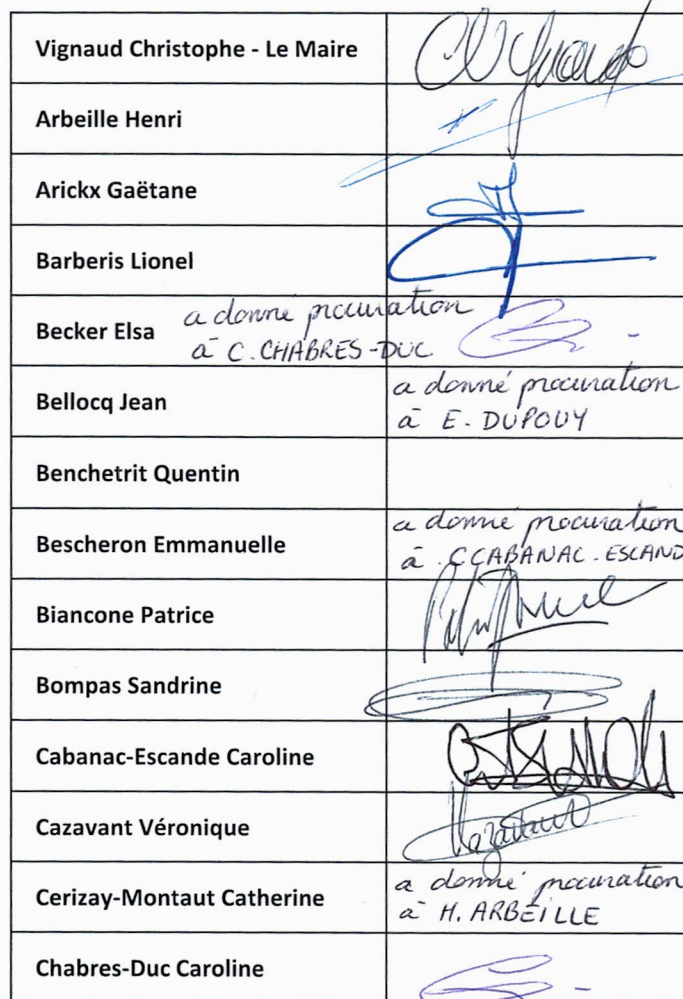 Vignaud Christophe - Le Maire
Arbeille Henri
Arickx Gaëtane
Barberis Lionel
Becker Elsa a donné procuration
à C. CHABRES-DUC
Bellocq Jean a donné procuration
à E. DUPOUY
Benchetrit Quentin
Bescheron Emmanuelle a donné procuration
à C CABANAC-ESCAND
Biancone Patrice
Bompas Sandrine
Cabanac-Escande Caroline
Cazavant Véronique
Cerizay-Montaut Catherine a donné procuration
à H. ARBEILLE
Chabres-Duc Caroline